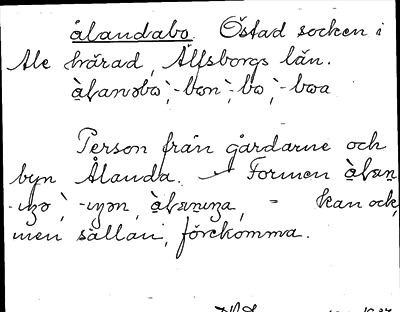 ålandabo. Östad socken i
Ale härad, Älfsborgs län.
-bon, -bo, -boa
Person från gårdarne och
byn Ålanda. – Formen
kan ock,
men sällan, förekomma.